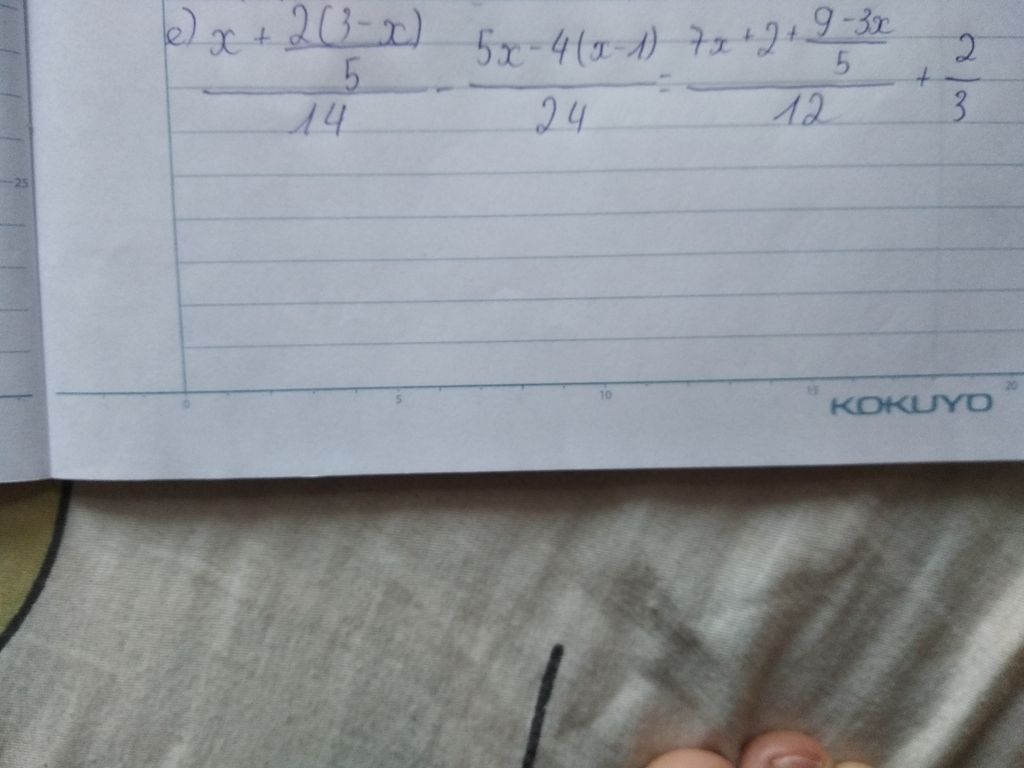 e) x + 2(3-x)/5 / 14 - 5x-4(x-1) / 24 = 7x+2+ 9-3x/5 / 12 + 2/3
25
0 5 10 15 20
KOKUYO